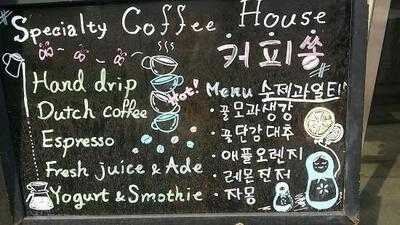 Specialty Coffee House
커피쏭
Hand drip
Dutch coffee
Espresso
Fresh juice & Ade
Yogurt & Smothie
Hot! Menu 수제과일티
· 꿀모과생강
· 꿀단감대추
· 애플오렌지
· 레몬진저
· 자몽